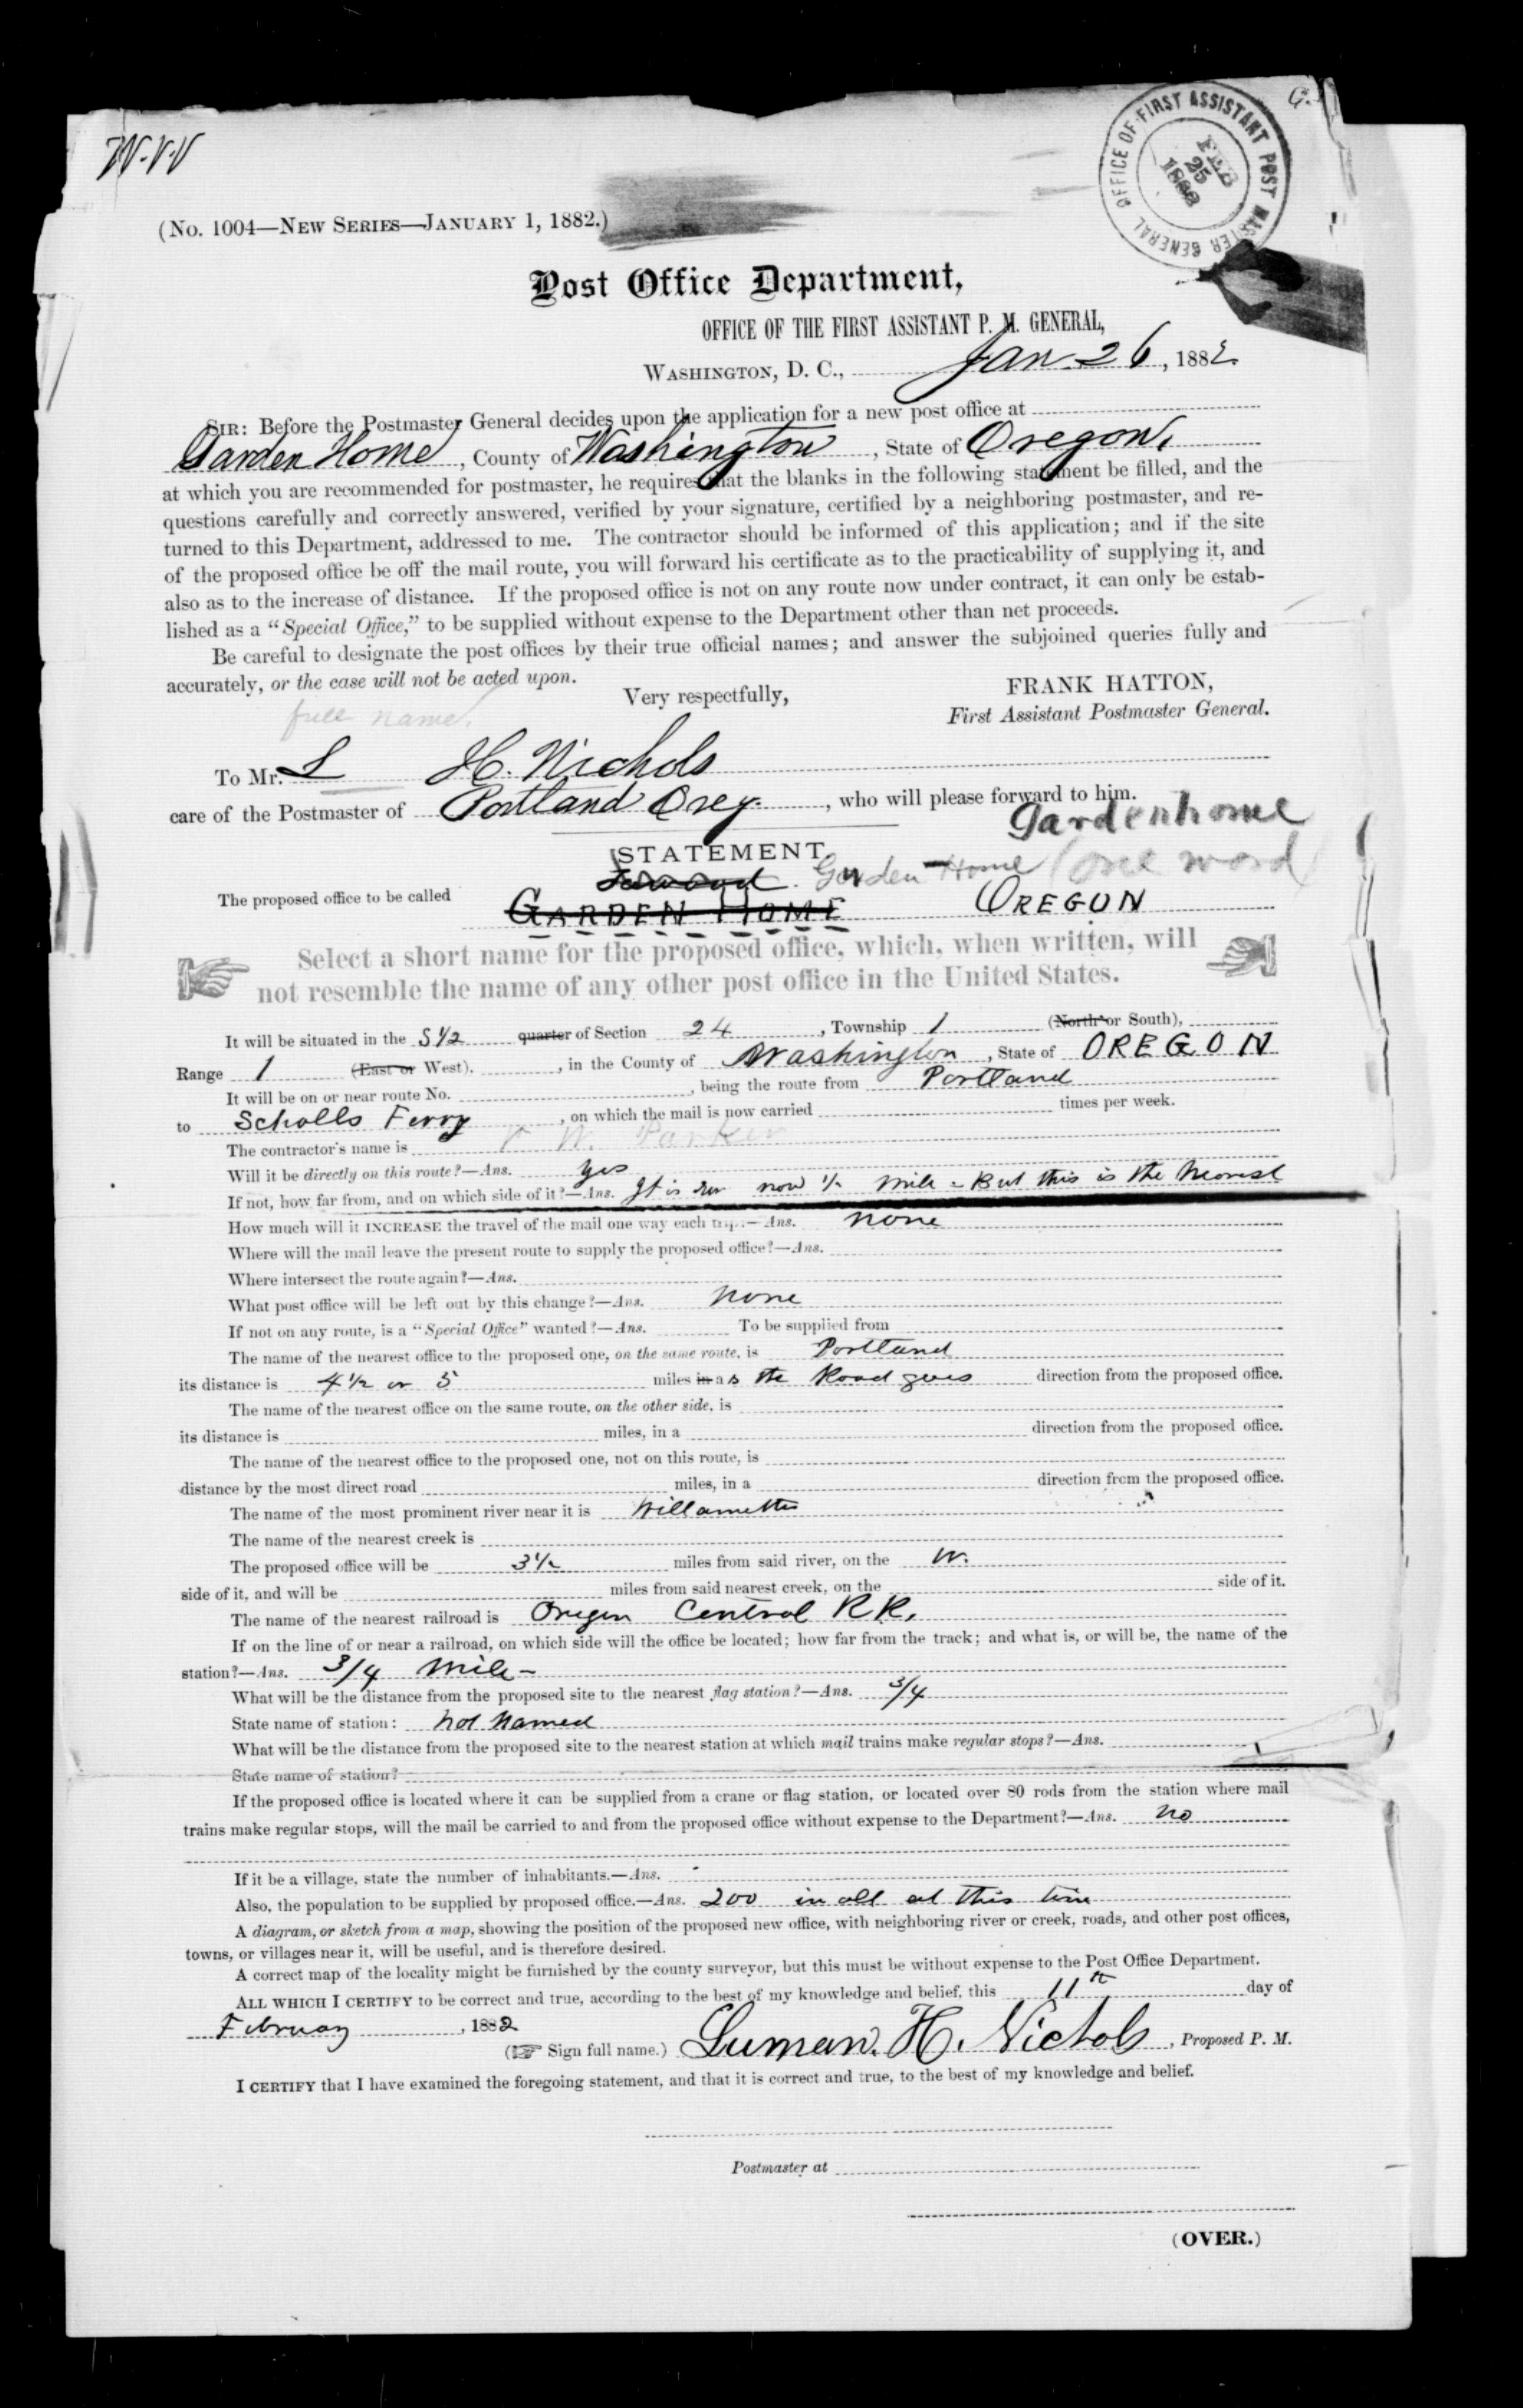 W.V.V
G.
OFFICE OF FIRST ASSISTANT POST MASTER GENERAL
FEB
25
1882
(No. 1004—New Series—January 1, 1882.)
Post Office Department,
OFFICE OF THE FIRST ASSISTANT P. M. GENERAL,
Washington, D. C., Jan 26, 1882.
Sir: Before the Postmaster General decides upon the application for a new post office at
Garden Home, County of Washington, State of Oregon,
at which you are recommended for postmaster, he requires that the blanks in the following statement be filled, and the
questions carefully and correctly answered, verified by your signature, certified by a neighboring postmaster, and re-
turned to this Department, addressed to me. The contractor should be informed of this application; and if the site
of the proposed office be off the mail route, you will forward his certificate as to the practicability of supplying it, and
also as to the increase of distance. If the proposed office is not on any route now under contract, it can only be estab-
lished as a "Special Office," to be supplied without expense to the Department other than net proceeds.
Be careful to designate the post offices by their true official names; and answer the subjoined queries fully and
accurately, or the case will not be acted upon.
Very respectfully,
FRANK HATTON,
First Assistant Postmaster General.
full name.
To Mr. L H. Nichols
care of the Postmaster of Portland Oreg., who will please forward to him.
Gardenhome
STATEMENT.
Garden Home (one word)
The proposed office to be called GARDEN HOME OREGON
Select a short name for the proposed office, which, when written, will
not resemble the name of any other post office in the United States.
It will be situated in the S 1/2 quarter of Section 24, Township 1 (North or South),
Range 1 (East or West), in the County of Washington, State of OREGON
It will be on or near route No. , being the route from Portland
to Scholls Ferry, on which the mail is now carried times per week.
The contractor's name is W. Parker
Will it be directly on this route?—Ans. yes
If not, how far from, and on which side of it?—Ans. It is now mile - But this is the Nearest
How much will it INCREASE the travel of the mail one way each trip?—Ans. none
Where will the mail leave the present route to supply the proposed office?—Ans.
Where intersect the route again?—Ans.
What post office will be left out by this change?—Ans. none
If not on any route, is a "Special Office" wanted?—Ans. To be supplied from
The name of the nearest office to the proposed one, on the same route, is Portland
its distance is 4 1/2 or 5 miles in as the Road goes direction from the proposed office.
The name of the nearest office on the same route, on the other side, is
its distance is miles, in a direction from the proposed office.
The name of the nearest office to the proposed one, not on this route, is
distance by the most direct road miles, in a direction from the proposed office.
The name of the most prominent river near it is Willamette
The name of the nearest creek is
The proposed office will be 3 1/2 miles from said river, on the W.
side of it, and will be miles from said nearest creek, on the side of it.
The name of the nearest railroad is Oregon Central RR.
If on the line of or near a railroad, on which side will the office be located; how far from the track; and what is, or will be, the name of the
station?—Ans. 3/4 mile—
What will be the distance from the proposed site to the nearest flag station?—Ans. 3/4
State name of station: not Named
What will be the distance from the proposed site to the nearest station at which mail trains make regular stops?—Ans.
State name of station?
If the proposed office is located where it can be supplied from a crane or flag station, or located over 80 rods from the station where mail
trains make regular stops, will the mail be carried to and from the proposed office without expense to the Department?—Ans. no
If it be a village, state the number of inhabitants.—Ans. -
Also, the population to be supplied by proposed office.—Ans. 200 in all at this time
A diagram, or sketch from a map, showing the position of the proposed new office, with neighboring river or creek, roads, and other post offices,
towns, or villages near it, will be useful, and is therefore desired.
A correct map of the locality might be furnished by the county surveyor, but this must be without expense to the Post Office Department.
ALL WHICH I CERTIFY to be correct and true, according to the best of my knowledge and belief, this 11th day of
February, 1882
(Sign full name.) Luman. H. Nichols, Proposed P. M.
I CERTIFY that I have examined the foregoing statement, and that it is correct and true, to the best of my knowledge and belief.
Postmaster at
(OVER.)